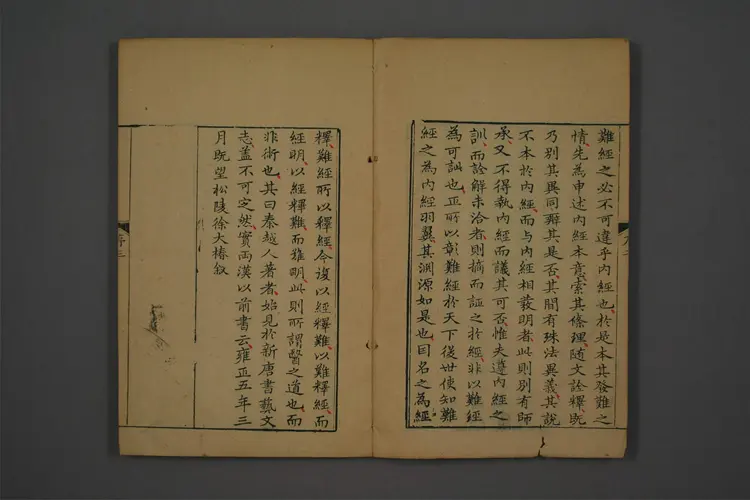 難經之必不可違乎內經也於是本其發難之
情先為申述內經本意索其條理随文詮釋既
乃別其異同辨其是否其間有殊法異義其說
不本於內經而與內經相發明者此則別有師
承又不得執內經而議其可否惟夫遵內經之
訓而詮解未洽者則摘而証之於經非以難經
為可訕也正所以彰難經於天下後世使知難
經之為內經羽翼其淵源如是也因名之為經
釋難經所以釋經今復以經釋難以難釋經而
經明以經釋難而難明此則所謂醫之道也而
非術也其曰秦越人著者始見於新唐書藝文
志盖不可定然實両漢以前書云雍正五年三
月既望松陵徐大椿叙